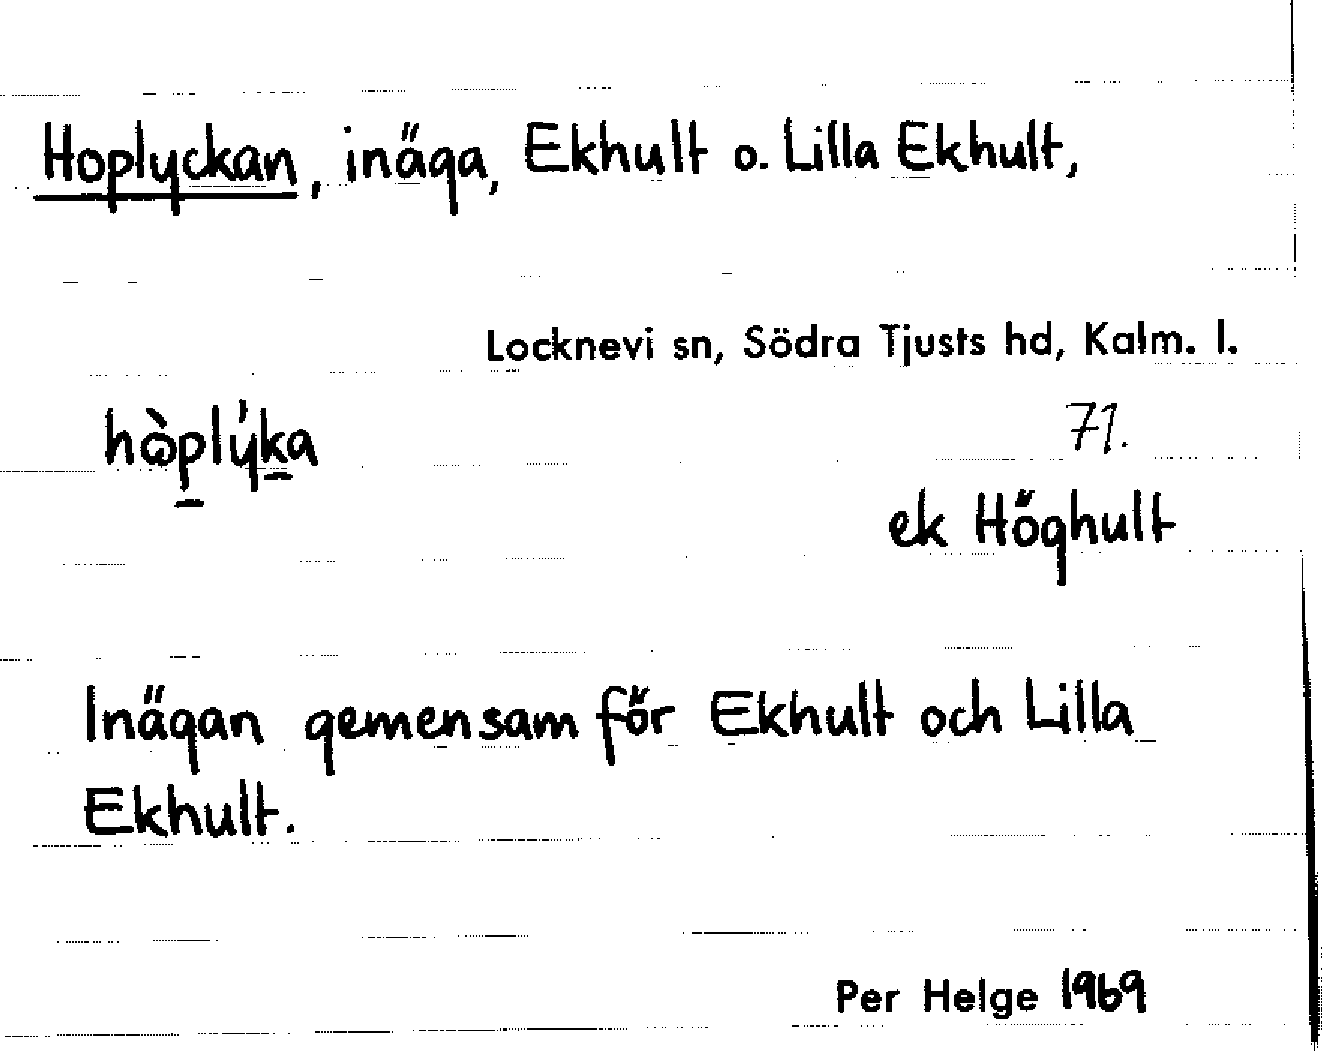 Hoplyckan, inäga, Ekhult o. Lilla Ekhult,
Locknevi sn, Södra Tjusts hd, Kalm. l.
hὼpl̀ýka
71.
ek Höghult
Inägan gemensam för Ekhult och Lilla
Ekhult.
Per Helge 1969